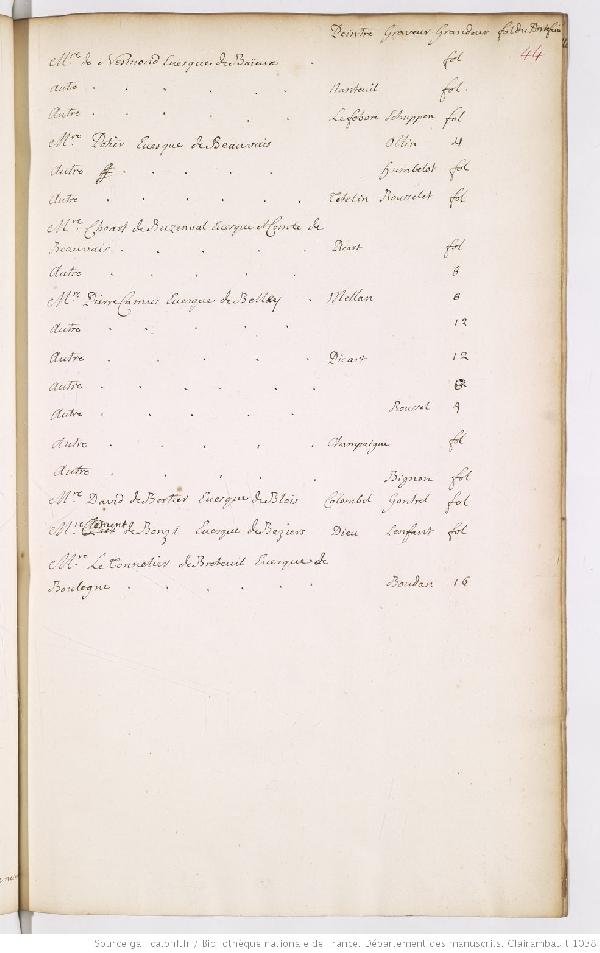 Peintre Graveur Grandeur fol. du Portefeuil
44
Mre de Nesmond Euesque de Baieux . fol
auto . . . . . . Nanteuil fol.
Autre . . . . . . Lefebure Schuppen fol
Mre Potier Euesque de Beauvais Ottin 4
Autre . . . . . Humbelot fol
Autre . . . . . . Testelin Rousselet fol
Mre Choart de Buzenval Euesque et Comte de
Beauvais . . . . . Picart fol
Autre . . . . . . 8
Mre Pierre Camus Euesque de Belley . Mellan 8
Autre . . . . . . 12
Autre . . . . . Picart 12
Autre . . . . .
Autre . . . . . Roussel 4
Autre . . . . . Champaigne fol
Autre . . . . . . Bignon fol
Mre David de Bertier Euesque de Blois Colombel Gantrel fol
Mre Clement de Bonzi Euesque de Beziers Dieu Lenfant fol
Mre Le Tonnelier de Breteuil Euesque de
Boulogne . . . . . Boudan 16
Source gallica.bnf.fr / Bibliothèque nationale de France. Département des manuscrits. Clairambault 1038